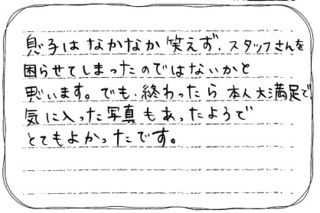 息子はなかなか笑えず、スタッフさんを
困らせてしまったのではないかと
思います。でも、終わったら 本人大満足で、
気に入った写真もあったようで
とてもよかったです。